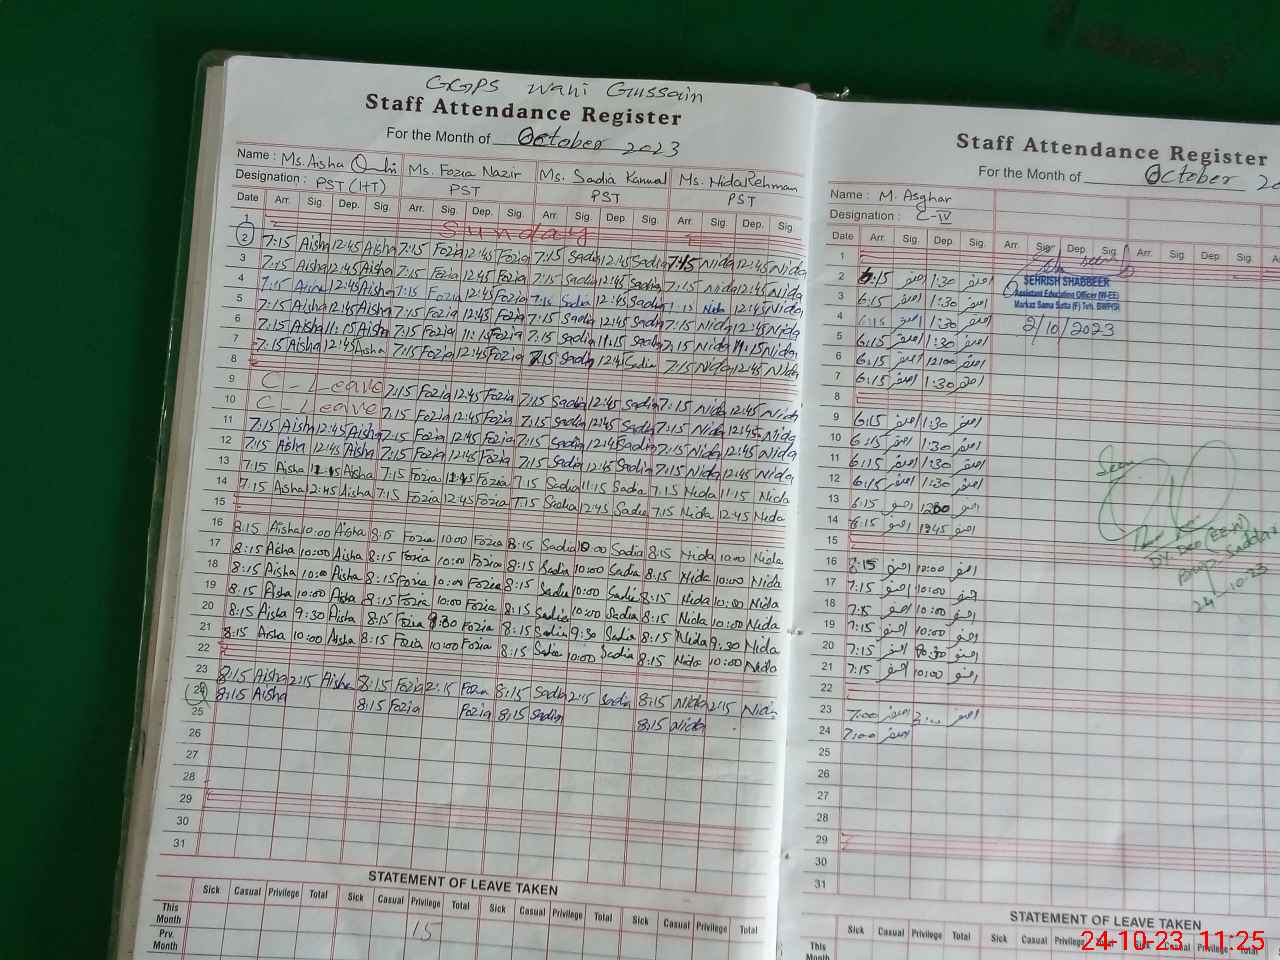 GGPS Wahi Hussain
Staff Attendance Register
For the Month of October 2023
Name : Ms. Aisha Ms. Fozia Nazir Ms. Sadia Kanwal Ms. Nida Rehman
Designation : PST (HT) PST PST PST
Date Arr. Sig. Dep. Sig. Arr. Sig. Dep. Sig. Arr. Sig. Dep. Sig. Arr. Sig. Dep. Sig.
1 Sunday
2 7:15 Aisha 12:45 Aisha 7:15 Fozia 12:45 Fozia 7:15 Sadia 12:45 Sadia 7:45 Nida 12:45 Nida
3 7:15 Aisha 12:45 Aisha 7:15 Fozia 12:45 Fozia 7:15 Sadia 12:45 Sadia 7:15 Nida 12:45 Nida
4 7:15 Aisha 12:45 Aisha 7:15 Fozia 12:45 Fozia 7:15 Sadia 12:45 Sadia Nida 12:45 Nida
5 7:15 Aisha 12:45 Aisha 7:15 Fozia 12:45 Fozia 7:15 Sadia 12:45 Sadia 7:15 Nida 12:45 Nida
6 7:15 Aisha 11:15 Aisha 7:15 Fozia 11:15 Fozia 7:15 Sadia 11:15 Sadia 7:15 Nida 11:15 Nida
7 7:15 Aisha 12:45 Aisha 7:15 Fozia 12:45 Fozia 7:15 Sadia 12:45 Sadia 7:15 Nida 12:45 Nida
8
9 C - Leave 7:15 Fozia 12:45 Fozia 7:15 Sadia 12:45 Sadia 7:15 Nida 12:45 Nida
10 C - Leave 7:15 Fozia 12:45 Fozia 7:15 Sadia 12:45 Sadia 7:15 Nida 12:45 Nida
11 7:15 Aisha 12:45 Aisha 7:15 Fozia 12:45 Fozia 7:15 Sadia 12:45 Sadia 7:15 Nida 12:45 Nida
12 7:15 Aisha 12:45 Aisha 7:15 Fozia 12:45 Fozia 7:15 Sadia 12:45 Sadia 7:15 Nida 12:45 Nida
13 7:15 Aisha Aisha 7:15 Fozia Fozia 7:15 Sadia 11:15 Sadia 7:15 Nida 11:15 Nida
14 7:15 Aisha 12:45 Aisha 7:15 Fozia 12:45 Fozia 7:15 Sadia 12:45 Sadia 7:15 Nida 12:45 Nida
15
16 8:15 Aisha 10:00 Aisha 8:15 Fozia 10:00 Fozia 8:15 Sadia 10:00 Sadia 8:15 Nida 10:00 Nida
17 8:15 Aisha 10:00 Aisha 8:15 Fozia 10:00 Fozia 8:15 Sadia 10:00 Sadia 8:15 Nida 10:00 Nida
18 8:15 Aisha 10:00 Aisha 8:15 Fozia 10:00 Fozia 8:15 Sadia 10:00 Sadia 8:15 Nida 10:00 Nida
19 8:15 Aisha 10:00 Aisha 8:15 Fozia 10:00 Fozia 8:15 Sadia 10:00 Sadia 8:15 Nida 10:00 Nida
20 8:15 Aisha 9:30 Aisha 8:15 Fozia 9:30 Fozia 8:15 Sadia 9:30 Sadia 8:15 Nida 9:30 Nida
21 8:15 Aisha 10:00 Aisha 8:15 Fozia 10:00 Fozia 8:15 Sadia 10:00 Sadia 8:15 Nida 10:00 Nida
22
23 8:15 Aisha 2:15 Aisha 8:15 Fozia 2:15 Fozia 8:15 Sadia 2:15 Sadia 8:15 Nida 2:15 Nida
24 8:15 Aisha 8:15 Fozia Fozia 8:15 Sadia 8:15 Nida
25
26
27
28
29
30
31
STATEMENT OF LEAVE TAKEN
Sick Casual Privilege Total Sick Casual Privilege Total Sick Casual Privilege Total Sick Casual Privilege Total
This Month 15
Prv. Month
Staff Attendance Register
For the Month of October 20
Name : M. Asghar
Designation : C-IV
Date Arr. Sig. Dep. Sig. Arr. Sig. Dep. Sig. Arr. Sig. Dep Sig. Arr.
1
2 6:15 اصغر 1:30 اصغر
SEHRISH SHABBEER
3 6:15 اصغر 1:30 اصغر
Assistant Education Officer (W-EE)
Markaz Sama Satta (F) Teh. BWP(S)
4 6:15 اصغر 1:30 اصغر
2/10/2023
5 6:15 اصغر 1:30 اصغر
6 6:15 اصغر 12:00 اصغر
7 6:15 اصغر 1:30 اصغر
8
9 6:15 اصغر 1:30 اصغر
10 6:15 اصغر 1:30 اصغر
11 6:15 اصغر 1:30 اصغر
Seen
12 6:15 اصغر 1:30 اصغر
13 6:15 اصغر اصغر
14 6:15 اصغر اصغر
15
DY. DEO (EE-W)
16 اصغر 10:00 اصغر
BWP Saddar
17 7:15 اصغر 10:00 اصغر
24-10-23
18 7:15 اصغر 10:00 اصغر
19 7:15 اصغر 10:00 اصغر
20 7:15 اصغر اصغر
21 7:15 اصغر 10:00 اصغر
22
23 7:00 اصغر اصغر
24 7:00 اصغر
25
26
27
28
29
30
31
STATEMENT OF LEAVE TAKEN
Sick Casual Privilege Total Sick Casual Privilege Total Sick Casual Privilege Total
This Month
24-10-23 11:25